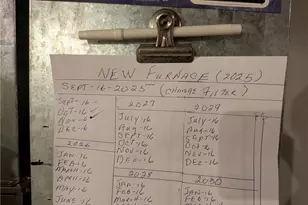 NEW FURNACE (2025)
SEPT-16-2025 (CHANGE FILTER)
SEPT-16
OCT-16 ✓
NOV-16 ✓
DEC-16
2026
JAN-16
FEB-16
MARCH-16
APRIL-16
MAY-16
JUNE-16
2027
JULY-16
AUG-16
SEPT-16
OCT-16
NOV-16
DEC-16
2028
JAN-16
FEB-16
MARCH-16
2029
JULY-16
AUG-16
SEPT-16
OCT-16
NOV-16
DEC-16
2030
JAN-16
FEB-16